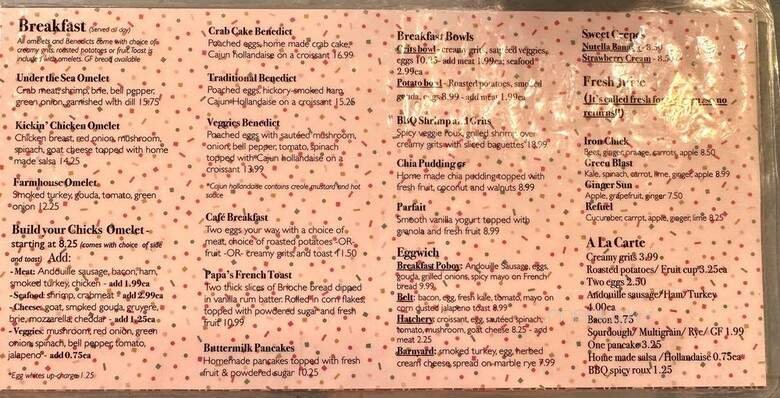 Breakfast (Served all day)
All omelets and Benedicts come with choice of
creamy grits, roasted potatoes or fruit. Toast is
include with omelets. GF bread available
Under the Sea Omelet
Crab meat, shrimp, brie, bell pepper,
green onion, garnished with dill 15.75
Kickin' Chicken Omelet
Chicken breast, red onion, mushroom,
spinach, goat cheese topped with home
made salsa 14.25
Farmhouse Omelet
Smoked turkey, gouda, tomato, green
onion 12.25
Build your Chicks Omelet -
starting at 8.25 (comes with choice of side
and toast) Add:
- Meat: Andouille sausage, bacon, ham,
smoked turkey, chicken - add 1.99ea
- Seafood: shrimp, crabmeat - add 2.99ea
- Cheese: goat, smoked gouda, gruyere,
brie, mozzarella, cheddar - add 1.25ea
- Veggies: mushroom, red onion, green
onion, spinach, bell pepper, tomato,
jalapeno - add 0.75ea
*Egg whites up-charge 1.25
Crab Cake Benedict
Poached eggs, home made crab cake,
Cajun Hollandaise on a croissant 16.99
Traditional Benedict
Poached eggs, hickory-smoked ham,
Cajun Hollandaise on a croissant 15.25
Veggies Benedict
Poached eggs with sautéed mushroom,
onion, bell pepper, tomato, spinach
topped with Cajun hollandaise on a
croissant 13.99
*Cajun hollandaise contains creole mustard and hot
sauce
Café Breakfast
Two eggs your way with a choice of
meat, choice of roasted potatoes -OR-
fruit -OR- creamy grits and toast 11.50
Papa's French Toast
Two thick slices of Brioche bread dipped
in vanilla rum batter. Rolled in corn flakes,
topped with powdered sugar and fresh
fruit 10.99
Buttermilk Pancakes
Homemade pancakes topped with fresh
fruit & powdered sugar 10.25
Breakfast Bowls
Grits bowl - creamy grits, sautéed veggies,
eggs 10.25- add meat 1.99ea; seafood
2.99ea
Potato bowl - Roasted potatoes, smoked
gouda, eggs 8.99 - add meat 1.99ea
BBQ Shrimp and Grits
Spicy veggie roux, grilled shrimp over
creamy grits with sliced baguettes 18.99
Chia Pudding GF
Home made chia pudding topped with
fresh fruit, coconut and walnuts 8.99
Parfait
Smooth vanilla yogurt topped with
granola and fresh fruit 8.99
Eggwich
Breakfast Poboy: Andouille Sausage, eggs,
gouda, grilled onions, spicy mayo on French
bread 9.99
Belt: bacon, egg, fresh kale, tomato, mayo on
corn dusted jalapeno toast 8.99
Hatchery: croissant, egg, sautéed spinach,
tomato, mushroom, goat cheese 8.25 - add
meat 2.25
Barnyard: smoked turkey, egg, herbed
cream cheese, spread on marble rye 7.99
Sweet Crepes
Nutella Banana - 8.50
Strawberry Cream - 8.50
Fresh Juice
(It's called fresh for no
returns!!)
Iron Chick
Beet, ginger, pineapple, carrots, apple 8.50
Green Blast
Kale, spinach, carrot, lime, ginger, apple 8.99
Ginger Sun
Apple, grapefruit, ginger 7.50
Refuel
Cucumber, carrot, apple, ginger, lime 8.25
A La Carte
Creamy grits 3.99
Roasted potatoes/ Fruit cup 3.25ea
Two eggs 2.50
Andouille sausage/Ham/Turkey
4.00ea
Bacon 3.75
Sourdough/ Multigrain/ Rye/ GF 1.99
One pancake 3.25
Home made salsa /Hollandaise 0.75ea
BBQ spicy roux 1.25